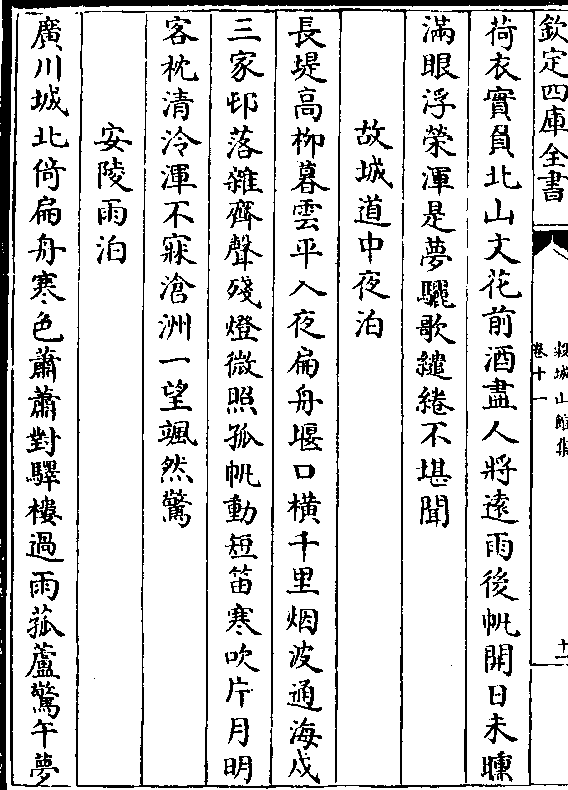 欽定四庫全書
穀城山館集
卷十一
十二
荷衣實負北山文花前酒盡人將遠雨後帆開日未曛
滿眼浮榮渾是夢驪歌繾綣不堪聞
故城道中夜泊
長堤高栁暮雲平入夜扁舟堰口橫千里烟波通海戍
三家邨落雜齊聲殘燈微照孤帆動短笛寒吹片月明
客枕清泠渾不寐滄洲一望颯然驚
安陵雨泊
廣川城北倚扁舟寒色蕭蕭對驛樓過雨菰蘆驚午夢